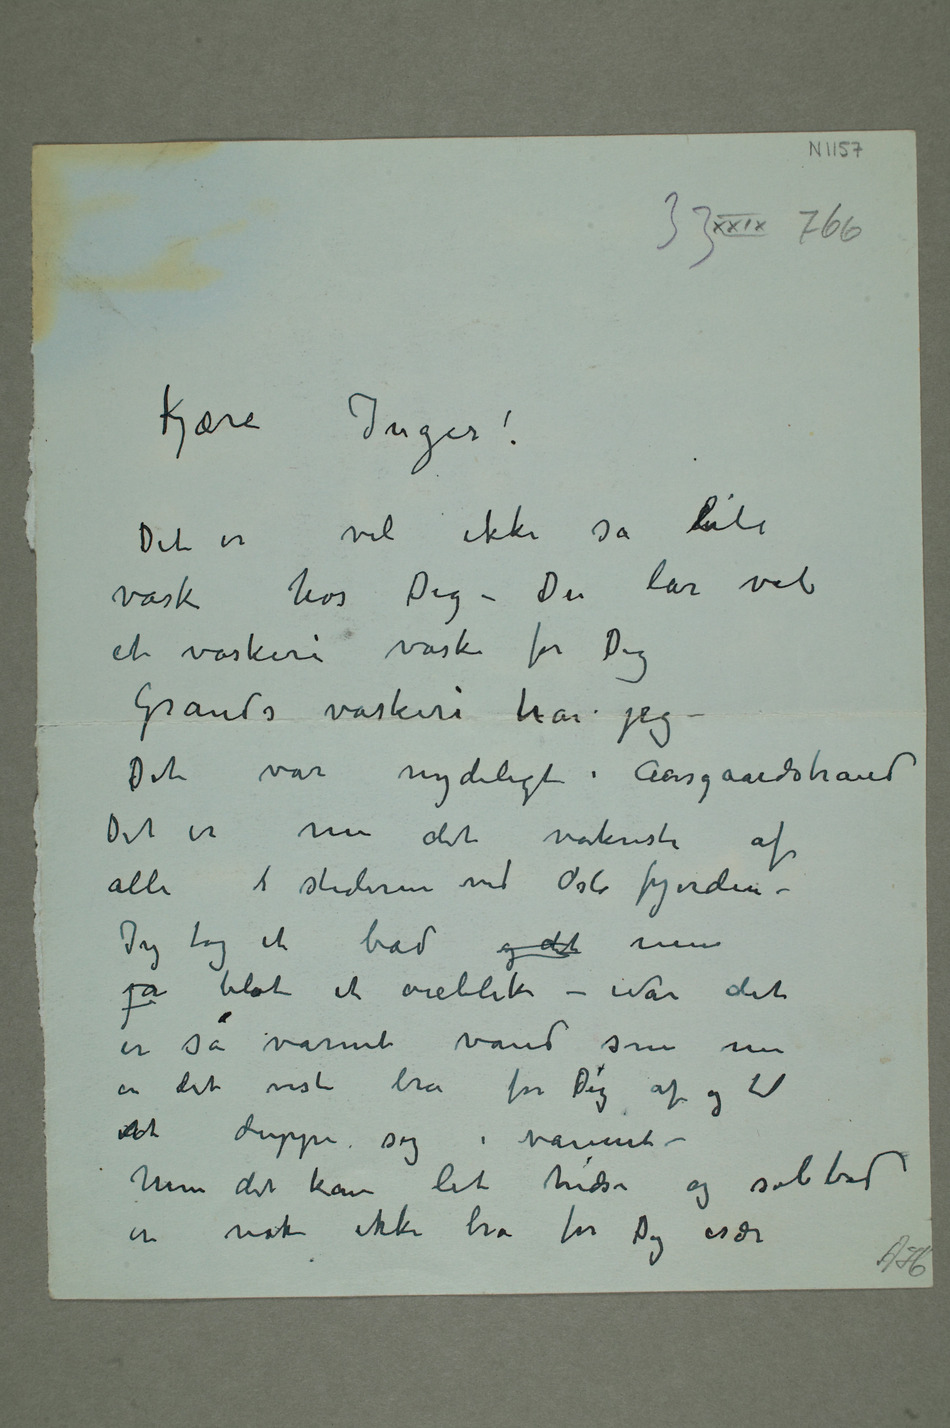 N 1157
33 XXIX 766
Kjære Inger!
Det er vel ikke så lite
vask hos Dig – Du lar vel
et vaskeri vaske for Dig
Grands vaskeri har jeg –
Det var nydeligt i Aasgaardstrand
Det er nu det vakreste af
alle stederne ved Oslofjorden –
Jeg tog et bad og det men
ja blot et øieblik – når det
er så varmt vand som nu
er det vist bra for Dig af og til
at duppe sig i vannet –
Men det kan let hidse og solbad
er nok ikke bra for Dig især